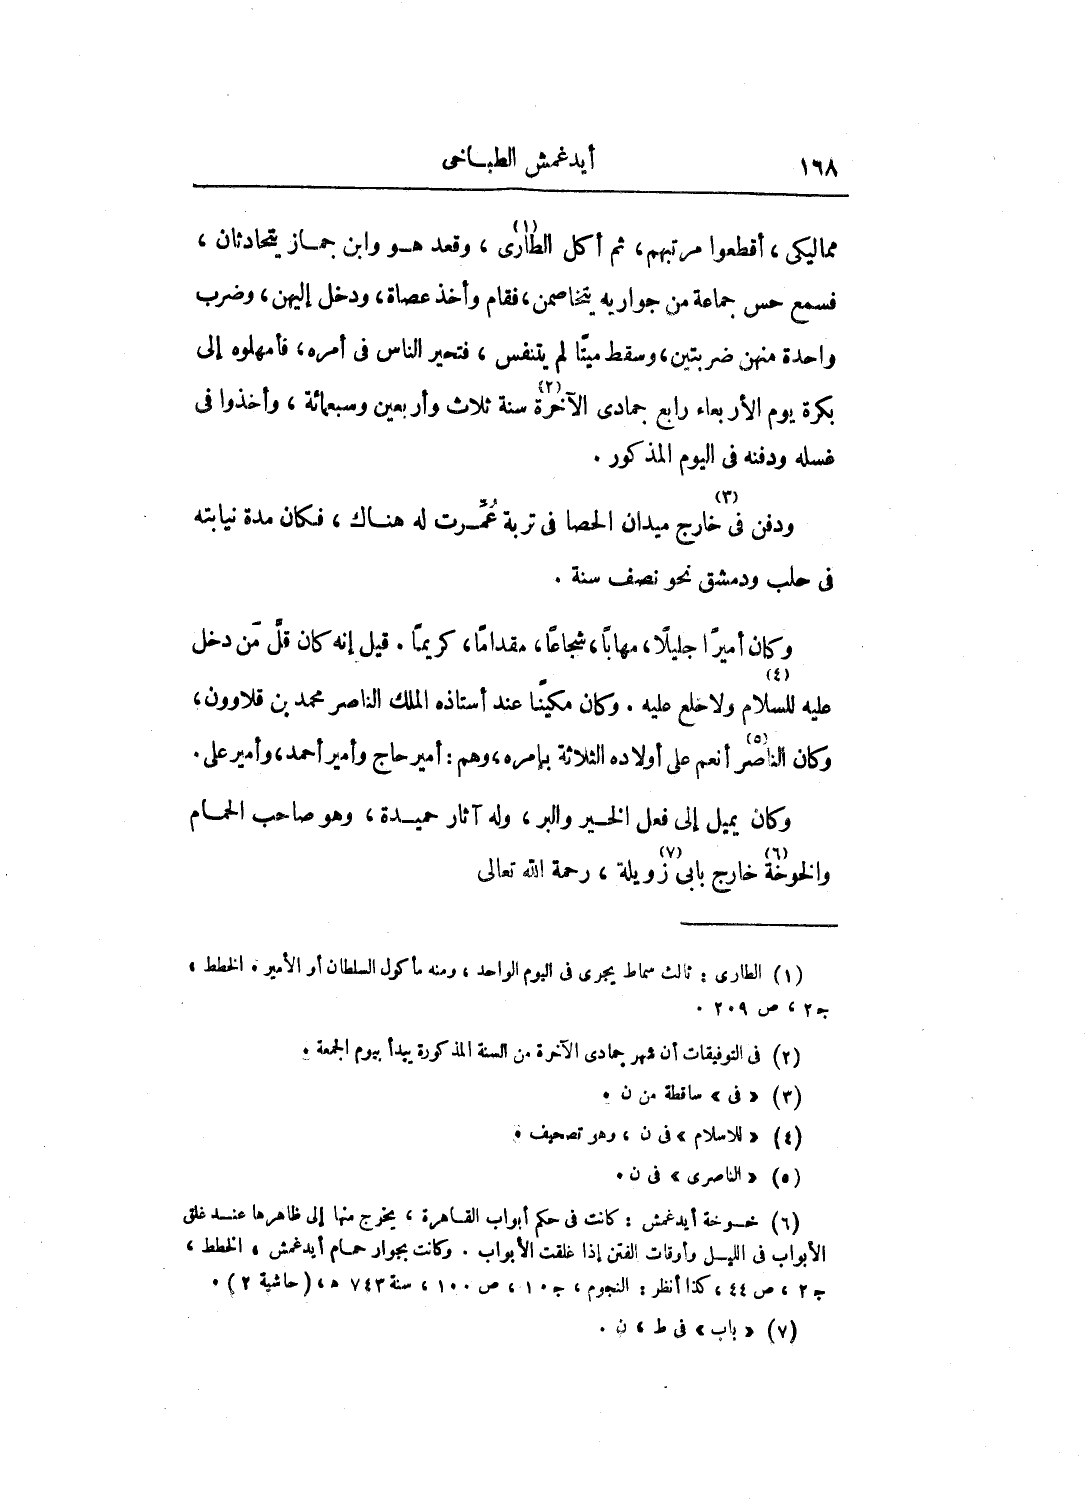 ١٦٨ أيدغمش الطبـاخى
مماليكى ، أقطعوا مرتبهم، ثم أكل الطارى (١) ، وقعد هـو وابن جمـاز يتحادثان ،
فسمع حس جماعة من جواريه يتخاصمن، فقام وأخذ عصاة، ودخل إليهن، وضرب
واحدة منهن ضربتين، وسقط ميتًا لم يتنفس ، فتحير الناس فى أمره، فأمهلوه إلى
بكرة يوم الأربعاء رابع جمادى الآخرة (٢) سنة ثلاث وأربعين وسبعمائة ، وأخذوا فى
غسله ودفنه فى اليوم المذكور .
ودفن فى (٣) خارج ميدان الحصا فى تربة عُمِّـرت له هنـاك ، فكان مدة نيابته
فى حلب ودمشق نحو نصف سنة .
وكان أميرًا جليلًا، مهابًا، شجاعًا، مقدامًا، كريمًا . قيل إنه كان قلَّ مَن دخل
عليه للسلام (٤) ولا خلع عليه . وكان مكينًا عند أستاذه الملك الناصر محمد بن قلاوون،
وكان الناصر (٥) أنعم على أولاده الثلاثة بإمره، وهم : أمير حاج وأمير أحمد، وأمير على .
وكان يميل إلى فعل الخـير والبر ، وله آثار حميـدة ، وهو صاحب الحمـام
والخوخة (٦) خارج بابى (٧) زويلة ، رحمة الله تعالى
(١) الطارى : ثالث سماط يجرى فى اليوم الواحد ، ومنه مأكول السلطان أو الأمير . الخطط ،
ج٢ ، ص ٢٠٩ .
(٢) فى التوفيقات أن شهر جمادى الآخرة من السنة المذكورة يبدأ بيوم الجمعة .
(٣) « فى » ساقطة من ن .
(٤) « للاسلام » فى ن ، وهو تصحيف .
(٥) « الناصرى » فى ن .
(٦) خـوخة أيدغمش : كانت فى حكم أبواب القـاهرة ، يخرج منها إلى ظاهرها عنـد غلق
الأبواب فى الليـل وأوقات الفتن إذا غلقت الأبواب . وكانت بجوار حمـام أيدغمش . الخطط ،
ج٢ ، ص ٤٤ ، كذا أنظر : النجوم ، ج١٠ ، ص ١٠٠ ، سنة ٧٤٣ ه ، ( حاشية ٢ ) .
(٧) « باب » فى ط ، ن .